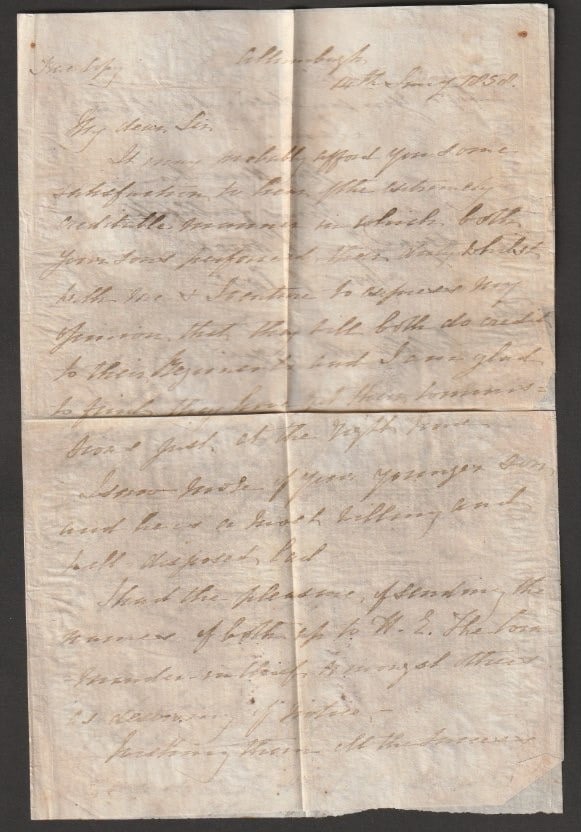 True Copy
Allumbagh
14th Jany 1858.
My dear Sir,
It may probably afford you some
satisfaction to hear of the extremely
creditable manner in which both
your sons performed their duty whilst
with me & I venture to express my
opinion that they will both do credit
to their Regiments and I am glad
to find they have got their commis=
sions just at the right time
I saw more of your younger son
and he is a most willing and
well disposed lad
I had the pleasure of sending the
names of both up to H. E. The Com
mander-in-Chief amongst others
as deserving of notice.-
wishing them all the success